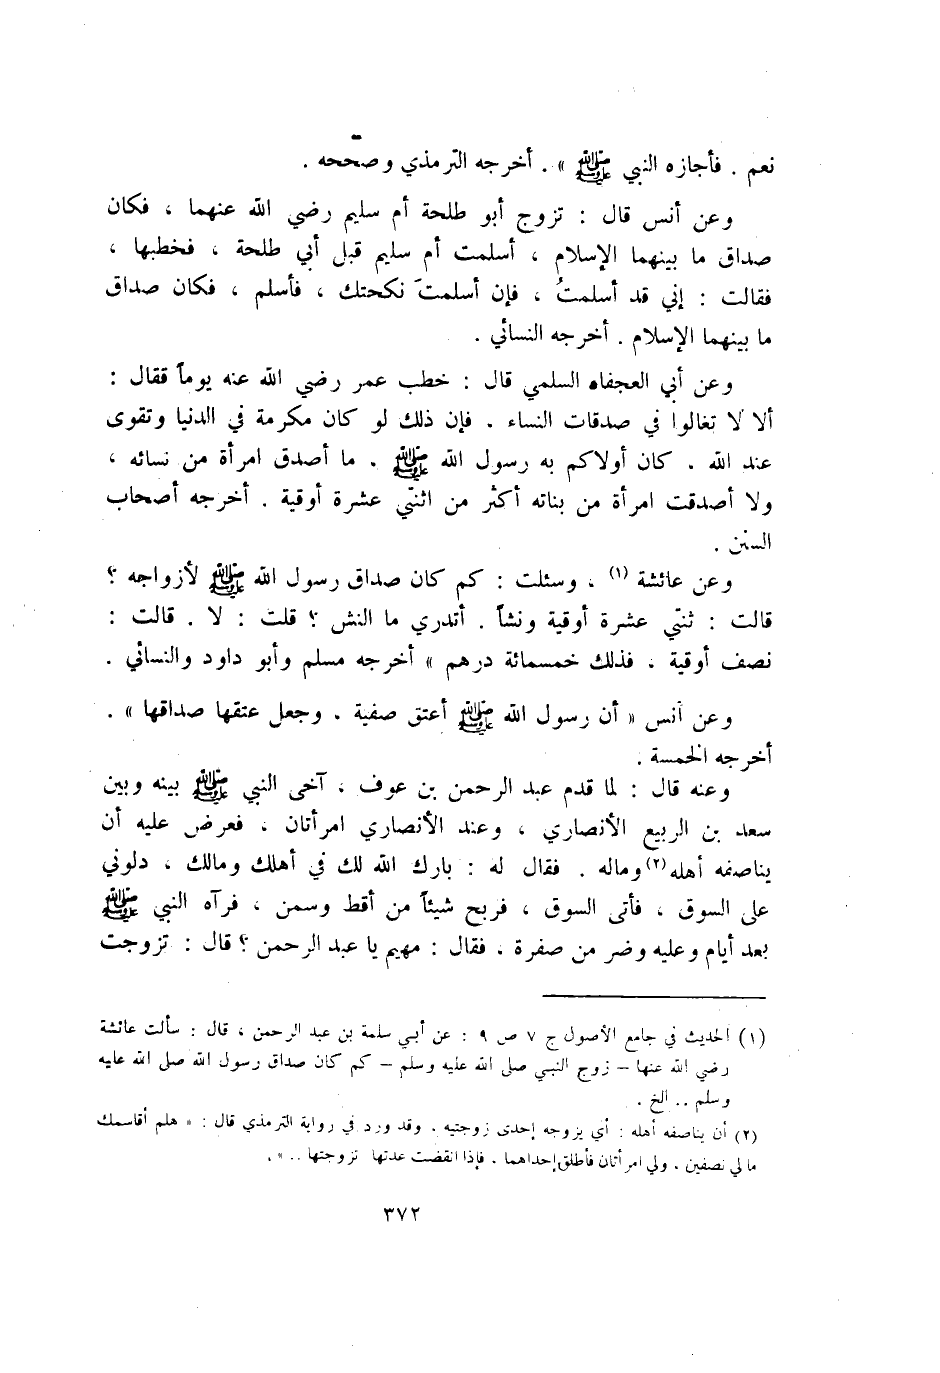 نعم . فأجازه النبي ﷺ » . أخرجه الترمذي وصححه .
وعن أنس قال : تزوج أبو طلحة أم سليم رضي الله عنهما ، فكان
صداق ما بينهما الإسلام ، أسلمت أم سليم قبل أبي طلحة ، فخطبها ،
فقالت : إني قد أسلمتُ ، فإن أسلمتَ نكحتك ، فأسلم ، فكان صداق
ما بينهما الإسلام . أخرجه النسائي .
وعن أبي العجفاء السلمي قال : خطب عمر رضي الله عنه يوماً فقال :
ألا لا تغالوا في صدقات النساء . فإن ذلك لو كان مكرمة في الدنيا وتقوى
عند الله . كان أولاكم به رسول الله ﷺ . ما أصدق امرأة من نسائه ،
ولا أصدقت امرأة من بناته أكثر من اثنتي عشرة أوقية . أخرجه أصحاب
السنن .
وعن عائشة (١) ، وسئلت : كم كان صداق رسول الله ﷺ لأزواجه ؟
قالت : ثنتي عشرة أوقية ونشاً . أتدري ما النش ؟ قلت : لا . قالت :
نصف أوقية ، فذلك خمسمائة درهم » أخرجه مسلم وأبو داود والنسائي .
وعن أنس « أن رسول الله ﷺ أعتق صفية . وجعل عتقها صداقها » .
أخرجه الخمسة .
وعنه قال : لما قدم عبد الرحمن بن عوف ، آخى النبي ﷺ بينه وبين
سعد بن الربيع الأنصاري ، وعند الأنصاري امرأتان ، فعرض عليه أن
يناصفه أهله (٢) وماله . فقال له : بارك الله لك في أهلك ومالك ، دلوني
على السوق ، فأتى السوق ، فربح شيئاً من أقط وسمن ، فرآه النبي ﷺ
بعد أيام وعليه وضر من صفرة ، فقال : مهيم يا عبد الرحمن ؟ قال : تزوجت
(١) الحديث في جامع الأصول ج ٧ ص ٩ : عن أبي سلمة بن عبد الرحمن ، قال : سألت عائشة
رضي الله عنها – زوج النبي صلى الله عليه وسلم – كم كان صداق رسول الله صلى الله عليه
وسلم .. الخ .
(٢) أن يناصفه أهله : أي يزوجه إحدى زوجتيه . وقد ورد في رواية الترمذي قال : « هلم أقاسمك
مالي نصفين ، ولي امرأتان فأطلق إحداهما . فإذا انقضت عدتها تزوجتها .. » .
٣٧٢